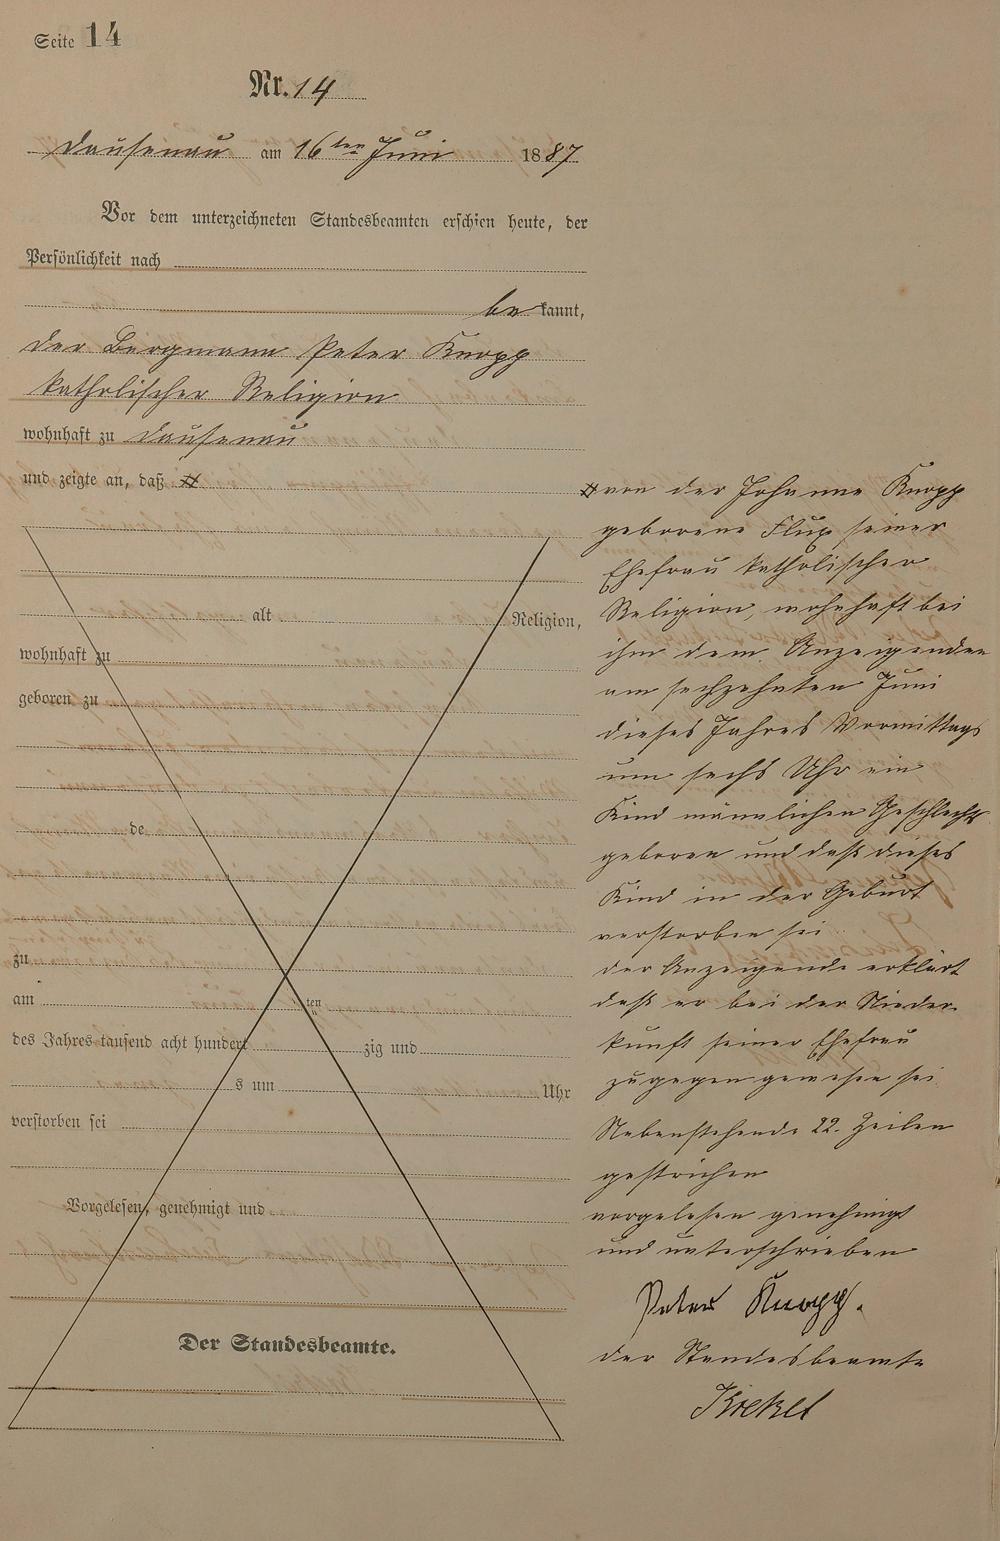 Seite 14
Nr. 14
Dausenau am 16ten Juni 1887
Vor dem unterzeichneten Standesbeamten erschien heute, der
Persönlichkeit nach
bekannt,
der Bergmann Peter Knopp
katholischer Religion
wohnhaft zu Dausenau
und zeigte an, daß #
alt Religion,
wohnhaft zu
geboren zu
de
zu
am ten
des Jahres tausend acht hundert zig und
s um Uhr
verstorben sei
Vorgelesen, genehmigt und
Der Standesbeamte.
# von der Johanne Knopp
geborene Flux seiner
Ehefrau katholischer
Religion, wohnhaft bei
ihm dem Anzeigenden
am sechzehnten Juni
dieses Jahres Vormittags
um sechs Uhr ein
Kind männlichen Geschlechts
geboren und daß dieses
Kind in der Geburt
verstorben sei
der Anzeigende erklärt
daß er bei der Nieder
kunft seiner Ehefrau
zugegen gewesen sei
Nebenstehende 22. Zeilen
gestrichen
vorgelesen genehmigt
und unterschrieben
Peter Knopp.
der Standesbeamte